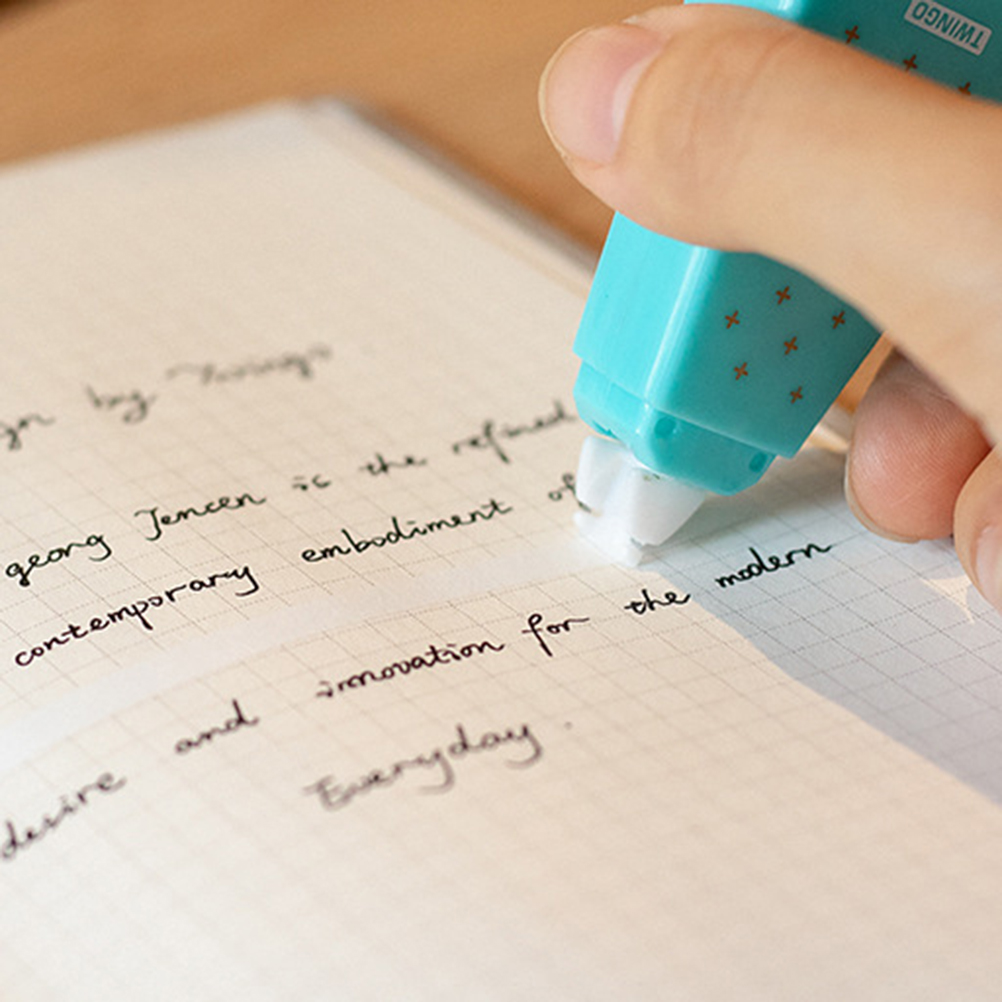 TWINGO
by Twingo
georg Jencen is the refined
contemporary embodiment of
desire and innovation for the modern
Everyday.